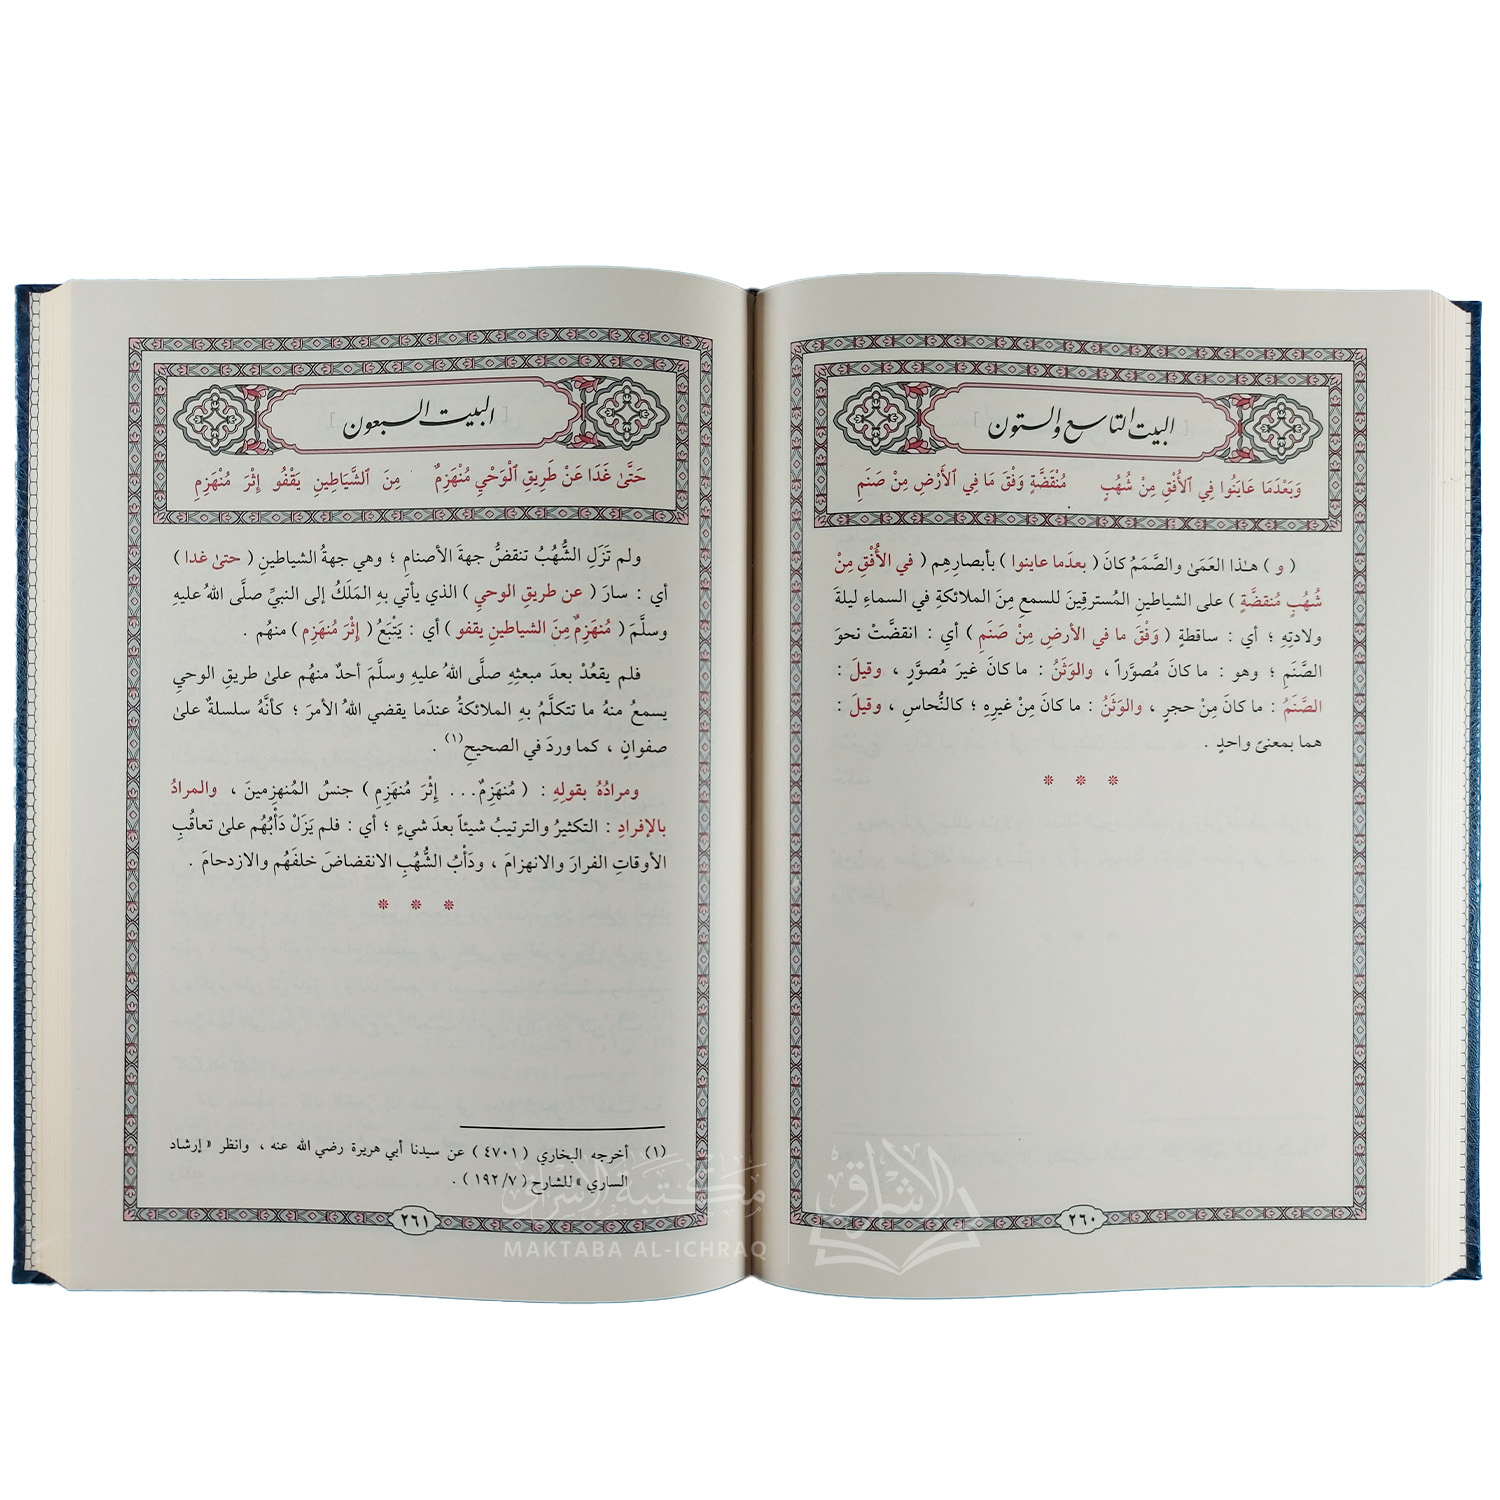 البيت التاسع والستون
وَبَعْدَمَا عَايَنُوا فِي ٱلْأُفْقِ مِنْ شُهُبٍ مُنْقَضَّةٍ وَفْقَ مَا فِي ٱلْأَرْضِ مِنْ صَنَمِ
( و ) هـٰذا العَمَىٰ والصَّمَمُ كانَ ( بعدَما عاينوا ) بأبصارِهِم ( في الأُفْقِ مِنْ
شُهُبٍ مُنقضَّةٍ ) على الشياطينِ المُسترِقِينَ للسمعِ مِنَ الملائكةِ في السماءِ ليلةَ
ولادتِهِ ؛ أي : ساقطةٍ ( وَفْقَ ما في الأرضِ مِنْ صَنَمِ ) أي : انقضَّتْ نحوَ
الصَّنَمِ ؛ وهو : ما كانَ مُصوَّراً ، والوَثَنُ : ما كانَ غيرَ مُصوَّرٍ ، وقيلَ :
الصَّنَمُ : ما كانَ مِنْ حجرٍ ، والوَثَنُ : ما كانَ مِنْ غيرِهِ ؛ كالنُّحاسِ ، وقيلَ :
هما بمعنىً واحدٍ .
٢٦٠
البيت السبعون
حَتَّىٰ غَدَا عَنْ طَرِيقِ ٱلْوَحْيِ مُنْهَزِمٌ مِنَ ٱلشَّيَاطِينِ يَقْفُو إِثْرَ مُنْهَزِمِ
ولم تَزَلِ الشُّهُبُ تنقضُّ جهةَ الأصنامِ ؛ وهي جهةُ الشياطينِ ( حتىٰ غدا )
أي : سارَ ( عن طريقِ الوحيِ ) الذي يأتي بهِ المَلَكُ إلى النبيِّ صلَّى اللهُ عليهِ
وسلَّمَ ( مُنهَزِمٌ مِنَ الشياطينِ يقفو ) أي : يَتْبَعُ ( إِثْرَ مُنهَزِمِ ) منهُم .
فلم يقعُدْ بعدَ مبعثِهِ صلَّى اللهُ عليهِ وسلَّمَ أحدٌ منهُم علىٰ طريقِ الوحيِ
يسمعُ منهُ ما تتكلَّمُ بهِ الملائكةُ عندَما يقضي اللهُ الأمرَ ؛ كأنَّهُ سلسلةٌ علىٰ
صفوانٍ ، كما وردَ في الصحيحِ(١) .
ومرادُهُ بقولِهِ : ( مُنهَزِمٌ... إِثْرَ مُنهَزِمِ ) جنسُ المُنهزِمينَ ، والمرادُ
بالإفرادِ : التكثيرُ والترتيبُ شيئاً بعدَ شيءٍ ؛ أي : فلم يَزَلْ دَأْبُهُم علىٰ تعاقُبِ
الأوقاتِ الفرارَ والانهزامَ ، ودَأْبُ الشُّهُبِ الانقضاضَ خلفَهُم والازدحامَ .
(١) أخرجه البخاري ( ٤٧٠١ ) عن سيدنا أبي هريرة رضي الله عنه ، وانظر « إرشاد
الساري » للشارح ( ١٩٢/٧ ) .
٢٦١
مكتبة الإشراق
MAKTABA AL-ICHRAQ
الإشراق